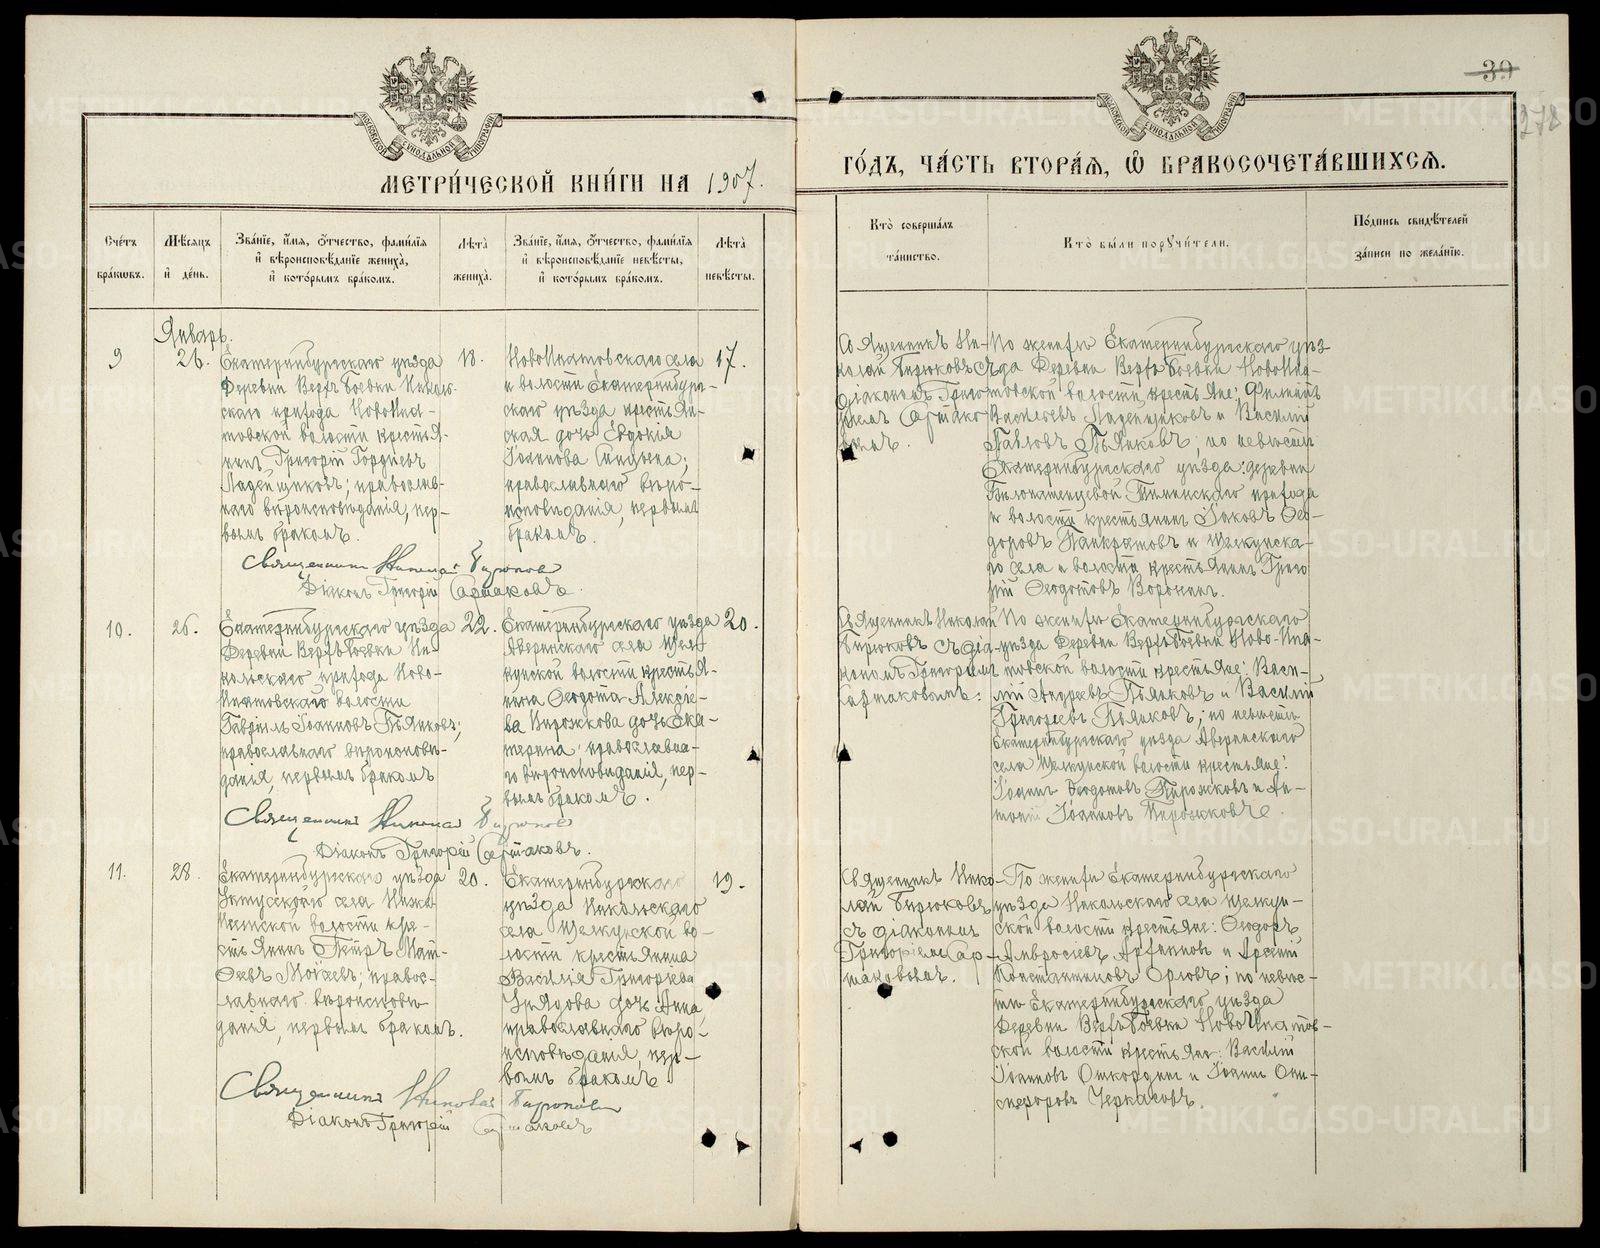 39
278
МЕТРИ́ЧЕСКОЙ КНИ́ГИ НА 1907.
ГО́ДЪ, ЧА́СТЬ ВТОРА́Я, Ѡ҆ БРАКОСОЧЕТА́ВШИХСЯ.
Сче́тъ бра́кѡвъ.
Мѣ́сяцъ и҆ де́нь.
Зва́нїе, и҆́мя, ѻ҆́тчество, фамі́лїя
и҆ вѣроисповѣ́данїе жениха̀,
и҆ кото́рымъ бра́комъ.
Лѣ́та̀ жениха̀.
Зва́нїе, и҆́мя, ѻ҆́тчество, фамі́лїя
и҆ вѣроисповѣ́данїе невѣ́сты,
и҆ кото́рымъ бра́комъ.
Лѣ́та̀ невѣ́сты.
Кто̀ соверша́лъ
та́инство.
Кто̀ бы́ли поручи́тели.
По́дпись свидѣ́телей
за́писи по жела́нїю.
Январь.
9
26.
Екатеринбургскаго уѣзда
Деревни Верхъ Боевки Николь-
скаго прихода НовоИпа-
товской волости крестья-
нинъ Григорій Гордѣевъ
Ладейщиковъ; православ-
наго вѣроисповѣданія, пер-
вымъ бракомъ.
18.
НовоИпатовскаго села
и волости Екатеринбург-
скаго уѣзда крестьян-
ская дочь Евдокія
Іоаннова
православнаго вѣро-
исповѣданія, первымъ
бракомъ.
17.
Священникъ Ни-
колай Бирюковъ съ
діакономъ Григо-
ріемъ Сартако-
вымъ.
По женихѣ Екатеринбургскаго уѣз-
да Деревни Верхъ Боевки НовоИпа-
товской волости, крестьяне: Филиппъ
Василіевъ Ладейщиковъ и Василій
Павловъ Пьянковъ; по невѣстѣ
Екатеринбургскаго уѣзда: деревни
прихода
и волости крестьянинъ Іаковъ Ѳео-
доровъ Панкратовъ и Щелкунска-
го села и волости крестьянинъ Григо-
рій Ѳеодотовъ Воронинъ.
Священникъ Николай Бирюковъ
Діаконъ Григорій Сартаковъ.
10.
26.
Екатеринбургскаго уѣзда
Деревни Верхъ Боевки Ни-
кольскаго прихода Ново-
Ипатовскаго волости
Гавріилъ Іоанновъ Пьянковъ;
православнаго вѣроисповѣ-
данія, первымъ бракомъ
22.
Екатеринбургскаго уѣзда
Аверинскаго села Щел-
кунской волости крестья-
нина Ѳеодота Алексіе-
ва Пирожкова дочь Ека-
терина православна-
го вѣроисповѣданія, пер-
вымъ бракомъ.
20.
Священникъ Николай
Бирюковъ съ діа-
кономъ Григоріемъ
Сартаковымъ:
По женихѣ Екатеринбургскаго
уѣзда Деревни ВерхъБоевки Ново-Ипа-
товской волости крестьяне: Васи-
лій Андреевъ Пьянковъ и Василій
Григоріевъ Пьянковъ; по невѣстѣ
Екатеринбургскаго уѣзда Аверинскаго
села Щелкунской волости крестьяне:
Іоаннъ Ѳеодотовъ Пирожковъ и Ан-
тоній Іоанновъ Пирожковъ.
Священникъ Николай Бирюковъ
Діаконъ Григорій Сартаковъ.
11.
28.
Екатеринбургскаго уѣзда
села
волости кре-
стьянинъ Петръ Мат-
ѳеевъ Моисеевъ; правос-
лавнаго вѣроисповѣ-
данія, первымъ бракомъ.
20.
Екатеринбургскаго
уѣзда Никольскаго
села Щелкунской во-
лости крестьянина
Василія Григорьева
дочь Анна
православнаго вѣро-
исповѣданія, пер-
вымъ бракомъ
19.
Священникъ Нико-
лай Бирюковъ
съ діакономъ
Григоріемъ Сар-
таковымъ.
По женихѣ Екатеринбургскаго
уѣзда Никольскаго села Щелкун-
ской волости крестьяне: Ѳеодоръ
Амвросіевъ и Арсеній
Константиновъ Орловъ; по невѣс-
тѣ Екатеринбургскаго уѣзда
Деревни ВерхъБоевки НовоИпатов-
ской волости крестьяне: Василій
Іоанновъ и Іоаннъ Они-
сифоровъ Черкасовъ.
Священникъ Николай Бирюковъ
Діаконъ Григорій Сартаковъ
METRIKI.GASO-URAL.RU